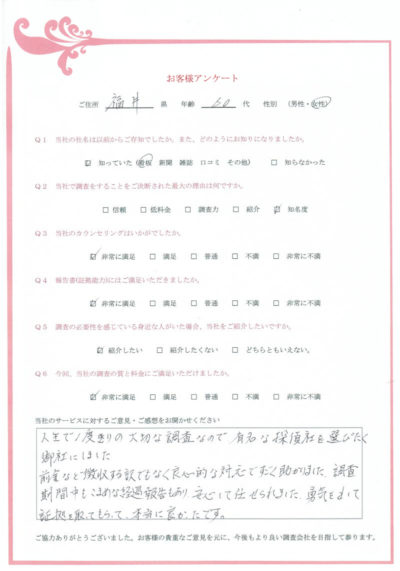 お客様アンケート
ご住所 福井 県 年齢 60 代 性別 (男性・女性)
Q1 当社の社名は以前からご存知でしたか。また、どのようにお知りになりましたか。
☑ 知っていた (看板 新聞 雑誌 口コミ その他) □ 知らなかった
Q2 当社で調査をすることをご決断された最大の理由は何ですか。
□ 信頼 □ 低料金 □ 調査力 □ 紹介 ☑ 知名度
Q3 当社のカウンセリングはいかがでしたか。
☑ 非常に満足 □ 満足 □ 普通 □ 不満 □ 非常に不満
Q4 報告書(証拠能力)にはご満足いただきましたか。
☑ 非常に満足 □ 満足 □ 普通 □ 不満 □ 非常に不満
Q5 調査の必要性を感じている身近な人がいた場合、当社をご紹介したいですか。
☑ 紹介したい □ 紹介したくない □ どちらともいえない。
Q6 今回、当社の調査の質と料金にご満足いただけましたか。
☑ 非常に満足 □ 満足 □ 普通 □ 不満 □ 非常に不満
当社のサービスに対するご意見・ご感想をお聞かせください
人生で1度きりの大切な調査なので 有名な探偵社を選びたく
御社にしました
前金など徴収する訳でもなく良心的な対応で すごく助かりました 調査
期間中もこまめな経過報告もあり 安心して任せられました 勇気をもって
証拠を取ってもらって、本当に良かったです。
ご協力ありがとうございました。お客様の貴重なご意見を元に、今後もより良い調査会社を目指して参ります。